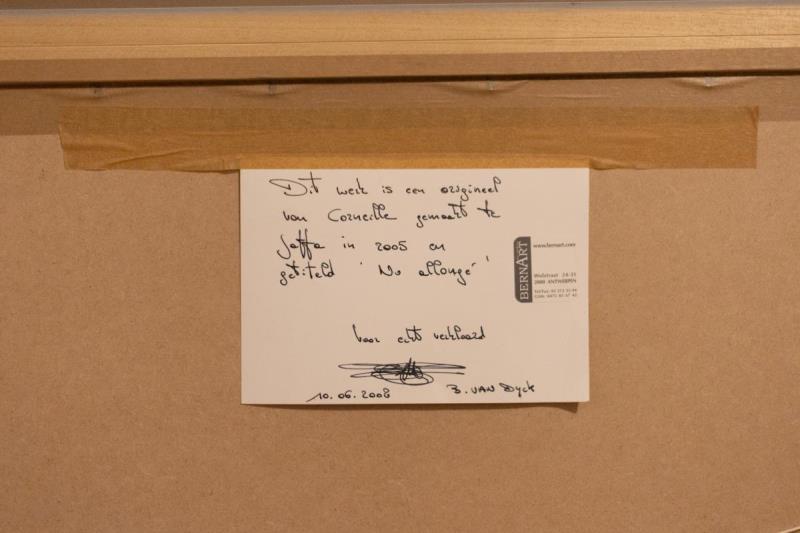 Dit werk is een origineel
van Corneille gemaakt te
Jaffa in 2005 en
getiteld 'Nu allongé'
BERNART
www.bernart.com
Wolstraat 29-31
2000 ANTWERPEN
Voor echt verklaard
10.06.2008 B. VAN Dyck